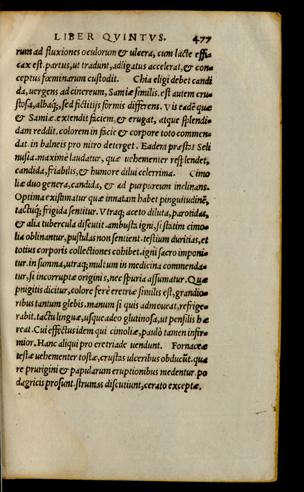 LIBER QVINTVS. 477
rum ad fluxiones oculorum & ulcera, cum lacte effi⸗
cax est. partus, ut tradunt, adligatus accelerat, & con⸗
ceptus fœminarum custodit. Chia eligi debet candi
da, uergens ad cinereum, Samiæ similis. est autem cru⸗
stosa, albaq;, sed fictitijs formis differens. Vis eadē quæ
& Samiæ. extendit faciem, & erugat, atque splendi⸗
dam reddit. colorem in facie & corpore toto commen⸗
dat. in balneis pro nitro deterget. Eadem præstat Seli
nusia. maxime laudatur, quæ uehementer resplendet,
candida, friabilis, & humore dilui celerrima. Cimo
liæ duo genera, candida, & ad purpureum inclinans.
Optima existimatur quæ innatam habet pinguitudinē,
tactuq; frigida sentitur. Vtraq; aceto diluta, parotidas,
& alia tubercula discutit. ambusta igni, si statim cimo⸗
lia oblinantur, pustulas non sentient. testium durities, et
totius corporis collectiones cohibet. igni sacro imponi⸗
tur. in summa, utraq; multum in medicina commenda⸗
tur, si incorruptæ originis, nec spuria assumatur. Quæ
pnigitis dicitur, colore ferè eretriæ similis est, grandio⸗
ribus tantum glebis. manum si quis admoueat, refrige⸗
rabit. tactu linguæ, usque adeo glutinosa, ut pensilis hæ
reat. Cui effectus idem qui cimoliæ, paulò tamen infir⸗
mior. Hanc aliqui pro eretriade uendunt. Fornaceæ
testæ uehementer tostæ, crustas ulceribus obducūt. quæ
re prurigini & papularum eruptionibus medentur. po
dagricis prosunt. strumas discutiunt, cerato exceptæ.